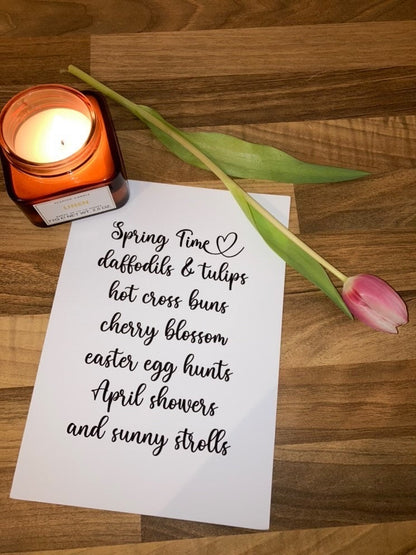 LINEN
Spring Time
daffodils & tulips
hot cross buns
cherry blossom
easter egg hunts
April showers
and sunny strolls